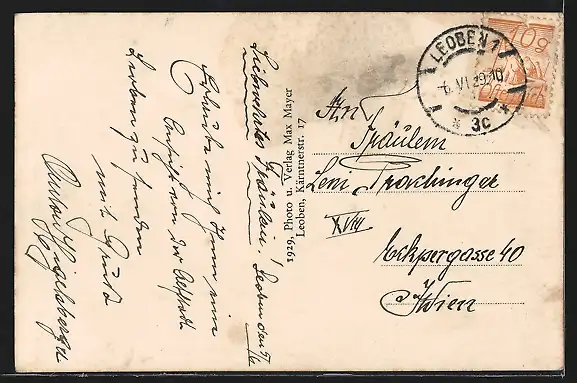 Liebwertes Fräulein! Leoben den 5/6
Erlaube mir Ihnen eine
Ansicht von der Altstadt
Leoben zu senden
mit Gruß
1929, Photo u. Verlag Max Mayer
Leoben, Kärntnerstr. 17
LEOBEN 1
6. VI. 29. 10
* 3c *
10g
An
Fräulein
Leni Prachinger
XVIII
Eckpergasse 40
Wien